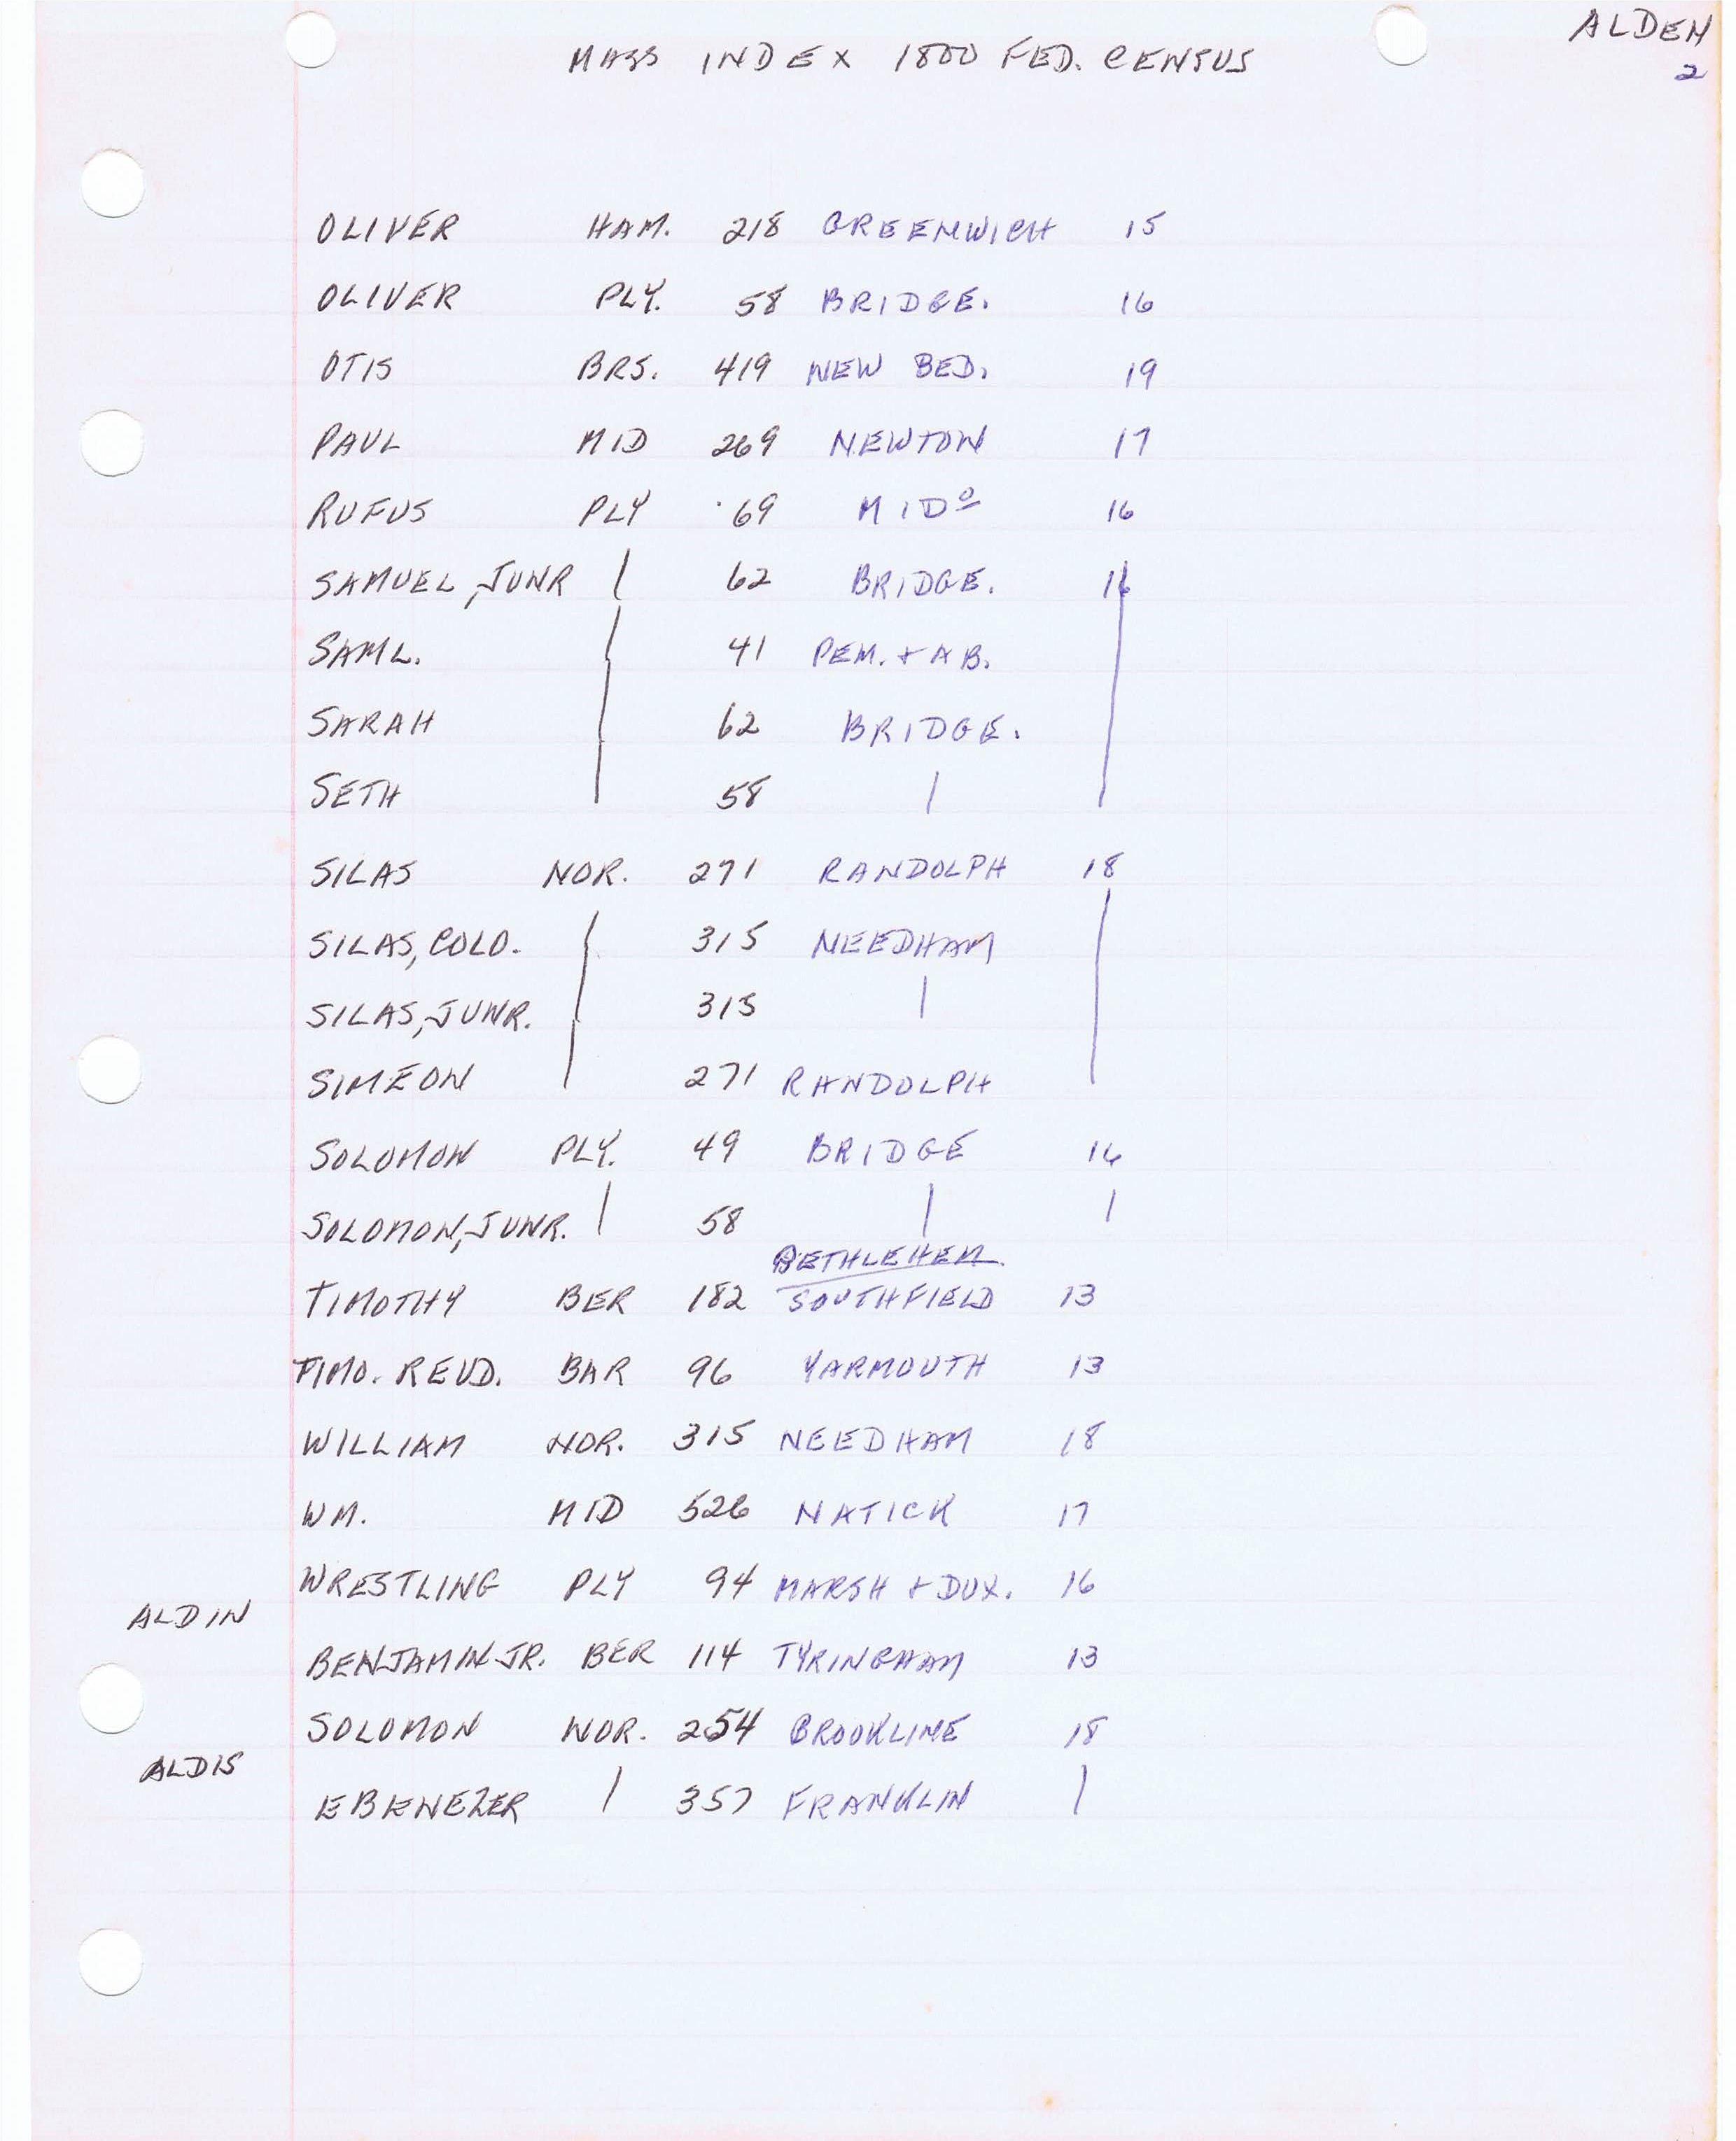 ALDEN
2
MASS INDEX 1800 FED. CENSUS
OLIVER HAM. 218 GREENWICH 15
OLIVER PLY. 58 BRIDGE. 16
OTIS BRS. 419 NEW BED. 19
PAUL MID 269 NEWTON 17
RUFUS PLY 69 MIDº 16
SAMUEL, JUNR | 62 BRIDGE. 16
SAML. | 41 PEM. + AB. |
SARAH | 62 BRIDGE. |
SETH | 58 | |
SILAS NOR. 271 RANDOLPH 18
SILAS, COLO. | 315 NEEDHAM |
SILAS, JUNR. | 315 | |
SIMEON | 271 RANDOLPH |
SOLOMON PLY. 49 BRIDGE 16
SOLOMON, JUNR. | 58 | |
BETHLEHEM
TIMOTHY BER 182 SOUTHFIELD 13
TIMO. REVD. BAR 96 YARMOUTH 13
WILLIAM NOR. 315 NEEDHAM 18
WM. MID 526 NATICK 17
WRESTLING PLY 94 MARSH + DUX. 16
ALDIN
BENJAMIN JR. BER 114 TYRINGHAM 13
SOLOMON NOR. 254 BROOKLINE 18
ALDIS
EBENEZER | 357 FRANKLIN |